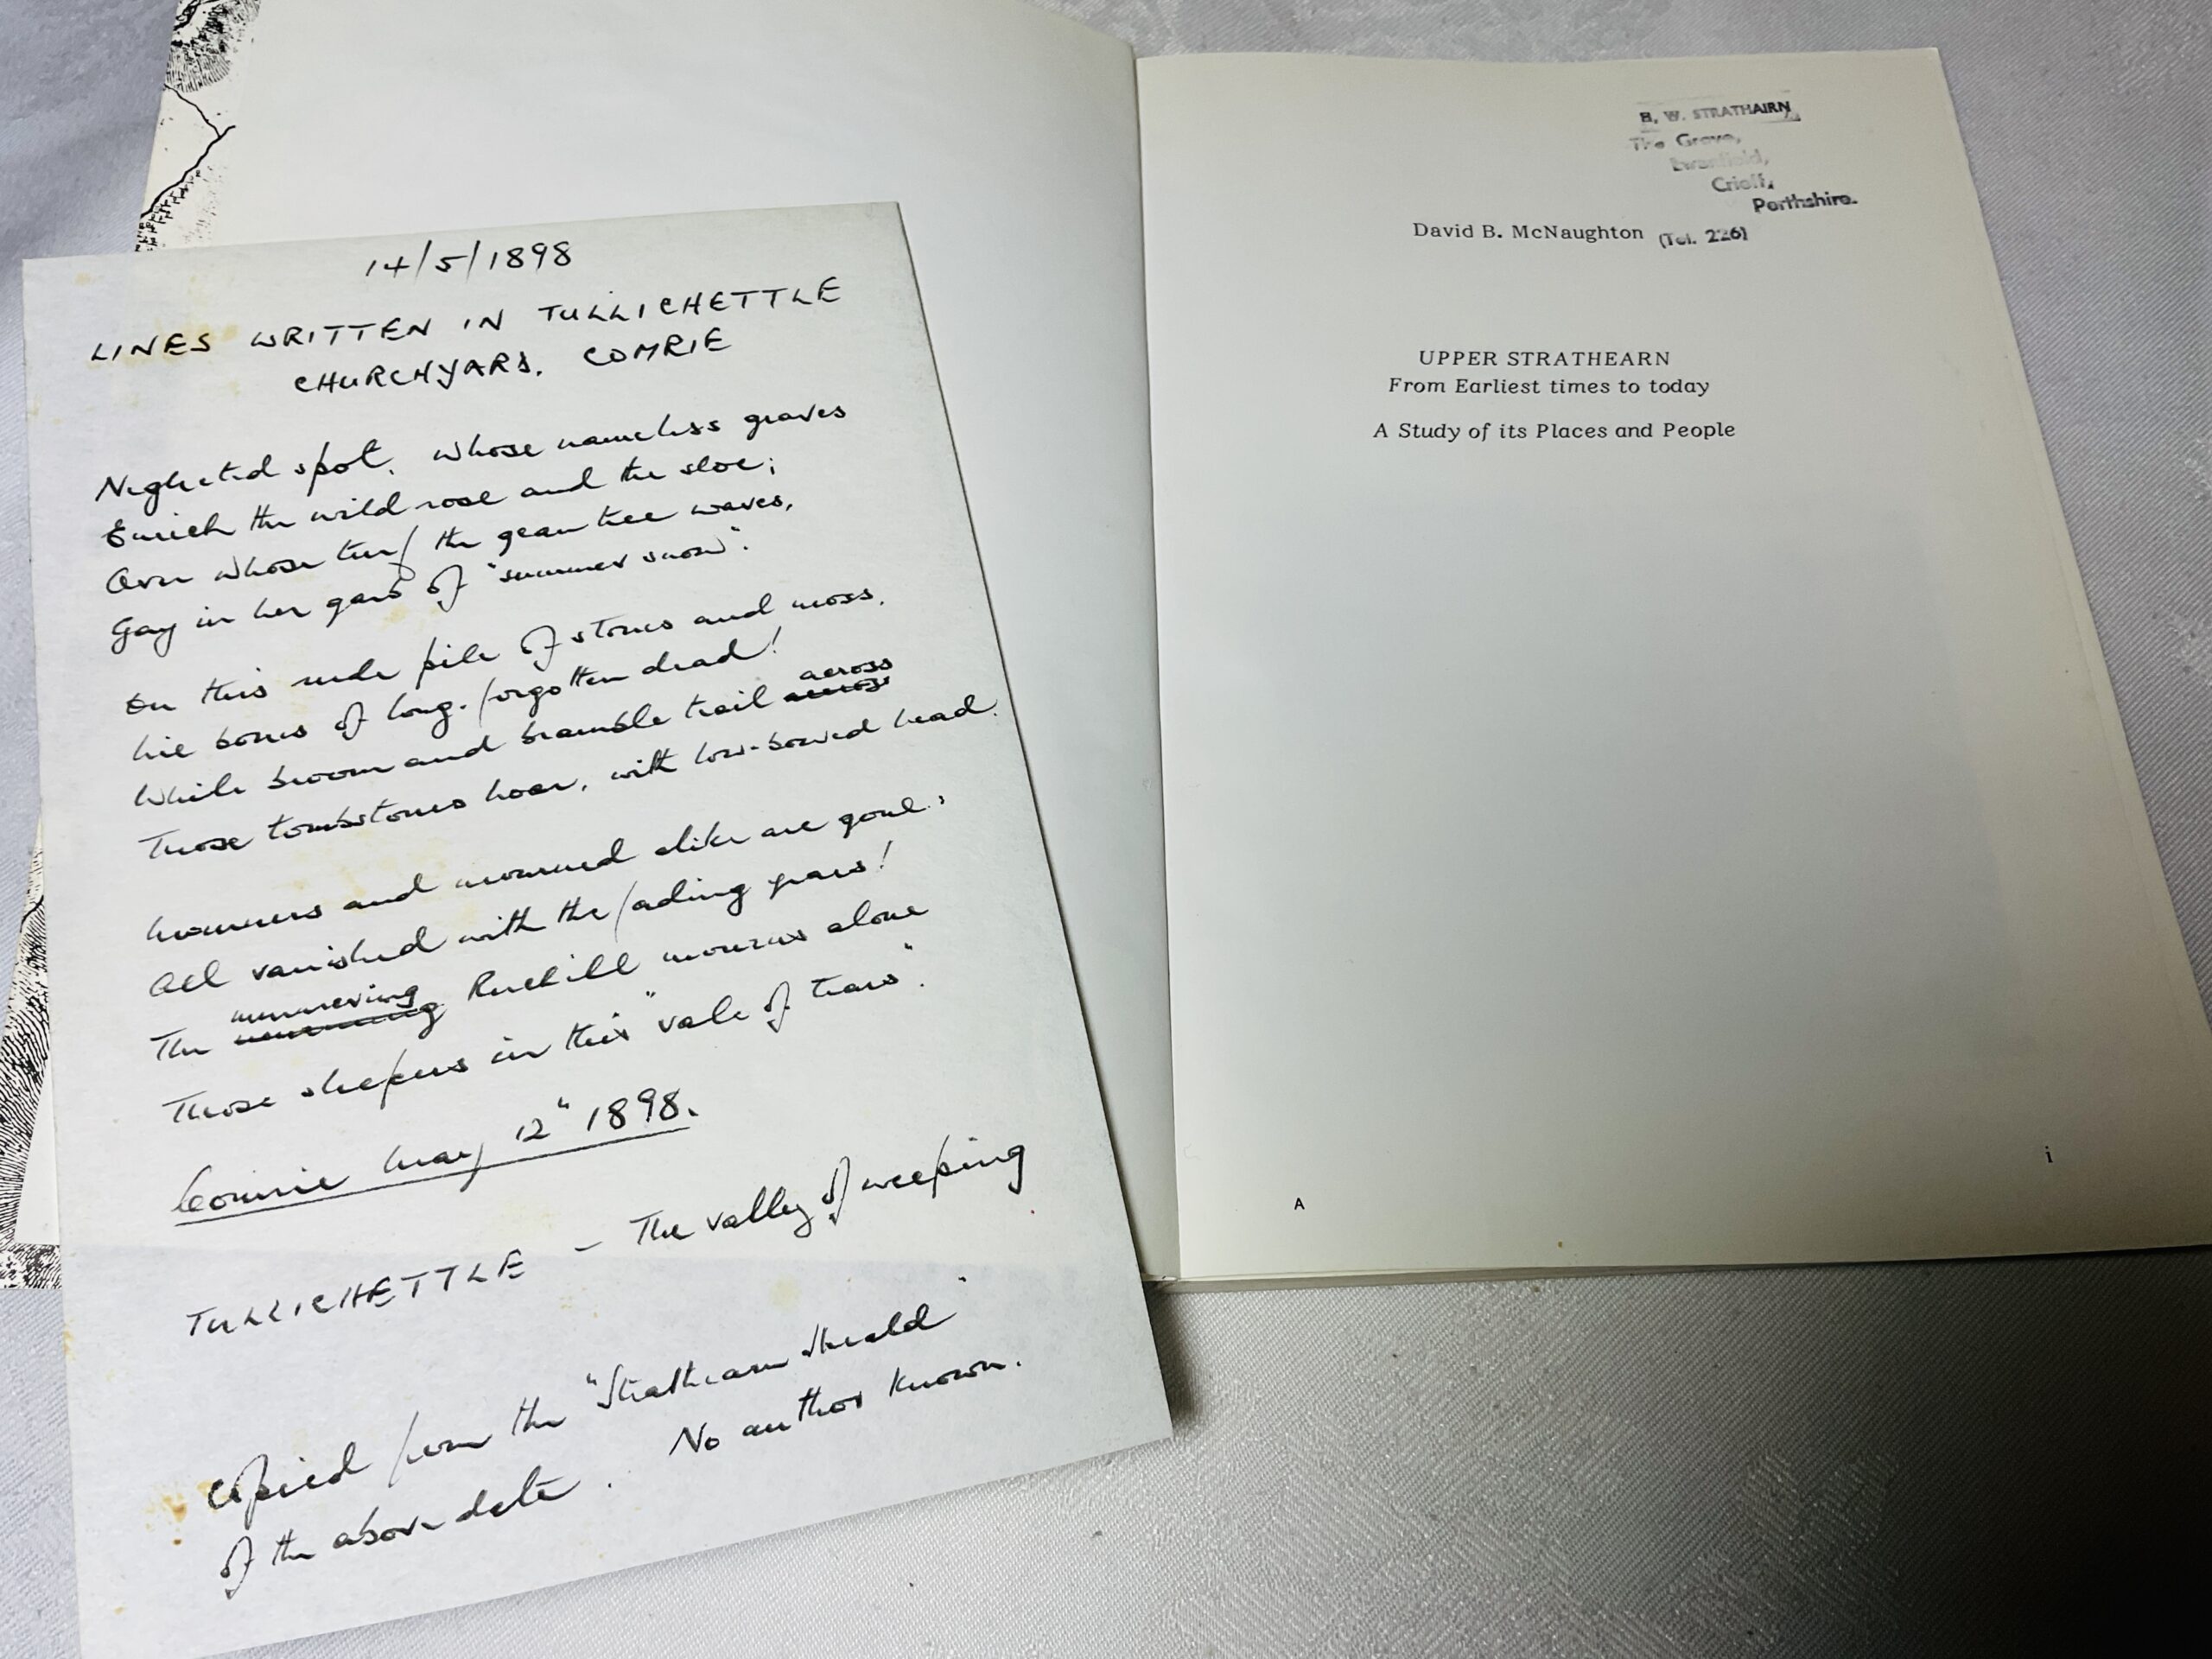 14/5/1898
LINES WRITTEN IN TULLICHETTLE
CHURCHYARD. COMRIE
Neglected spot, whose nameless graves
Enrich the wild rose and the sloe;
Over whose turf the gean tree waves,
Gay in her garb of "summer snow".
In this rude pile of stones and moss,
Lie bones of long-forgotten dead!
While broom and bramble trail across across
Those tombstones hoar, with low-bowed head.
Mourners and mourned alike are gone.
All vanished with the fading years!
The murmuring Ruchill mourns alone
Those sleepers in this "vale of tears".
Comrie May 12" 1898.
TULLICHETTLE - The valley of weeping
Copied from the "Strathearn Herald"
of the above date. No author known.
B. W. STRATHAIRN
The Grove,
Crieff,
Perthshire.
David B. McNaughton (Tel. 226)
UPPER STRATHEARN
From Earliest times to today
A Study of its Places and People
A
i